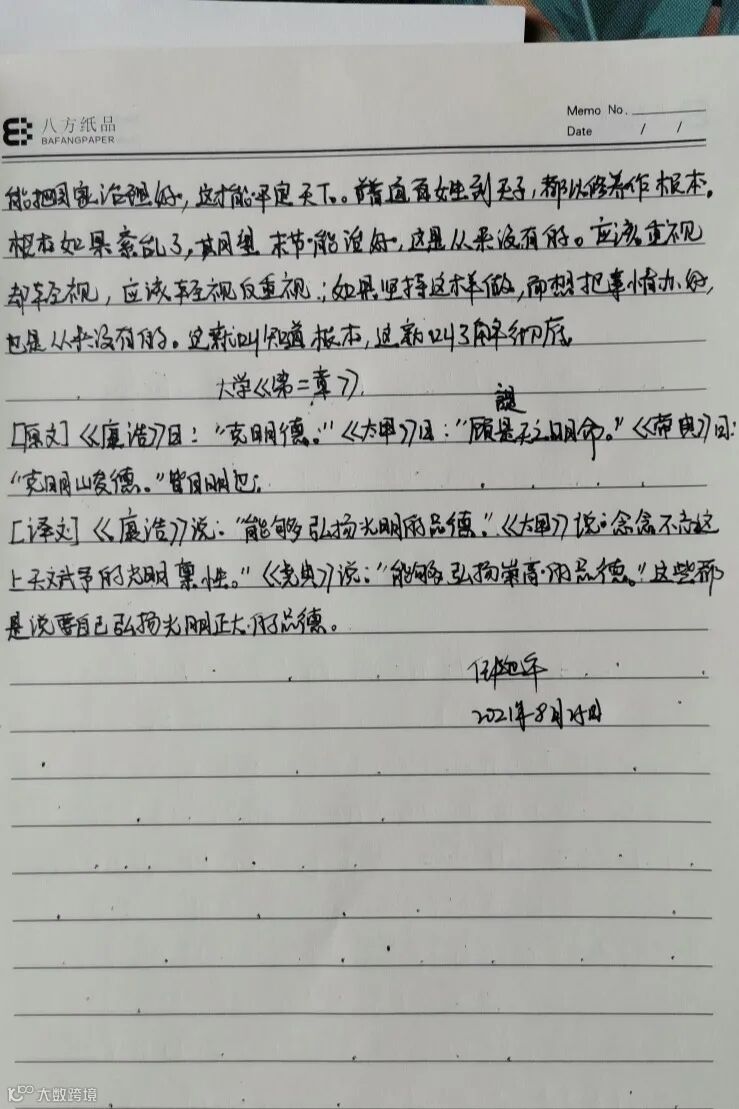 八方纸品
BAFANGPAPER
Memo No.
Date / /
能把国家治理好，这才能平定天下。普通百姓到天子，都以修养作根本。
根本如果紊乱了，其期望末节能治好，这是从来没有的。应该重视
却轻视，应该轻视反重视；如果坚持这样做，而想把事情办好，
也是从来没有的。这就叫知道根本，这就叫了解彻底。
大学《第二章》
[原文]《康浩》曰："克明德。"《太甲》曰："顾諟是天之明命。"《帝典》曰：
"克明山夋德。"皆自明也；
[译文]《康浩》说："能够弘扬光明的品德。"《太甲》说：念念不忘这
上天赋予的光明禀性。"《尧典》说："能够弘扬崇高的品德。"这些都
是说要自己弘扬光明正大的品德。
2021年8月25日
大数跨境